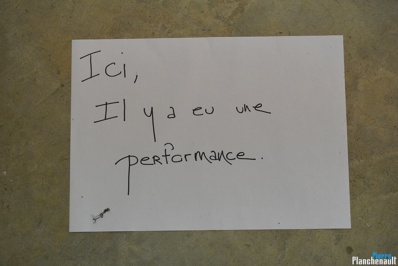 Ici,
Il y a eu une
performance.
Pierre
Planchenault